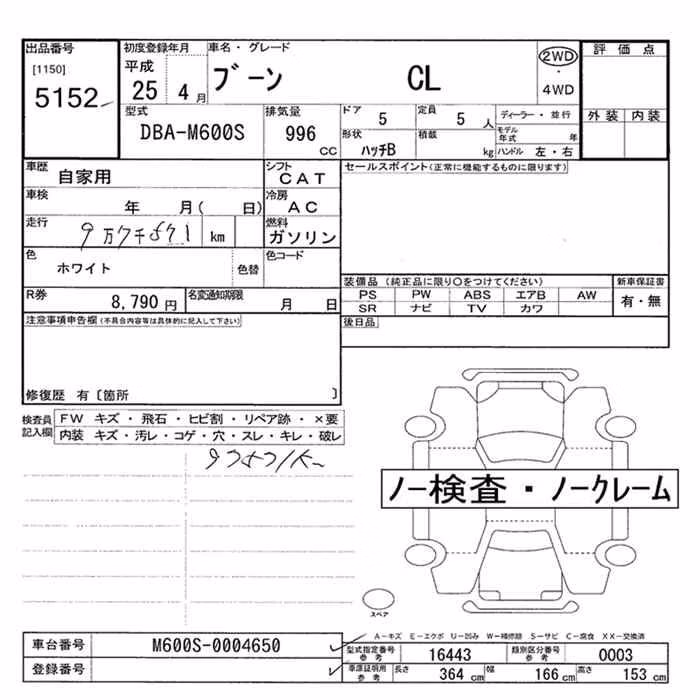 出品番号
[1150]
5152
初度登録年月
平成
25 4月
車名・グレード
ブーン CL
2WD
・
4WD
評価点
外装 内装
型式
DBA-M600S
排気量
996
CC
ドア
5
定員
5人
ディーラー・並行
形状
ハッチB
積載
kg
モデル年式 年
ハンドル 左・右
車歴
自家用
シフト
CAT
車検
年 月( 日)
冷房
AC
走行
9万7千571 km
燃料
ガソリン
色
ホワイト
色替
色コード
R券
8,790円
名変通知期限
月 日
セールスポイント(正常に機能するものに限ります)
装備品(純正品に限り○をつけてください)
PS PW ABS エアB AW
SR ナビ TV カワ
新車保証書
有・無
後日品
注意事項申告欄(不具合内容等は具体的に記入して下さい)
修復歴 有〔箇所 〕
検査員記入欄
FW キズ・飛石・ヒビ割・リペア跡・×要
内装 キズ・汚レ・コゲ・穴・スレ・キレ・破レ
97571K
ノー検査・ノークレーム
スペア
A－キズ E－エクボ U－凹み W－補修跡 S－サビ C－腐食 XX－交換済
車台番号
M600S-0004650
登録番号
型式指定番号
参考
16443
類別区分番号
参考
0003
車庫証明用
参考
長さ
364 cm
幅
166 cm
高さ
153 cm